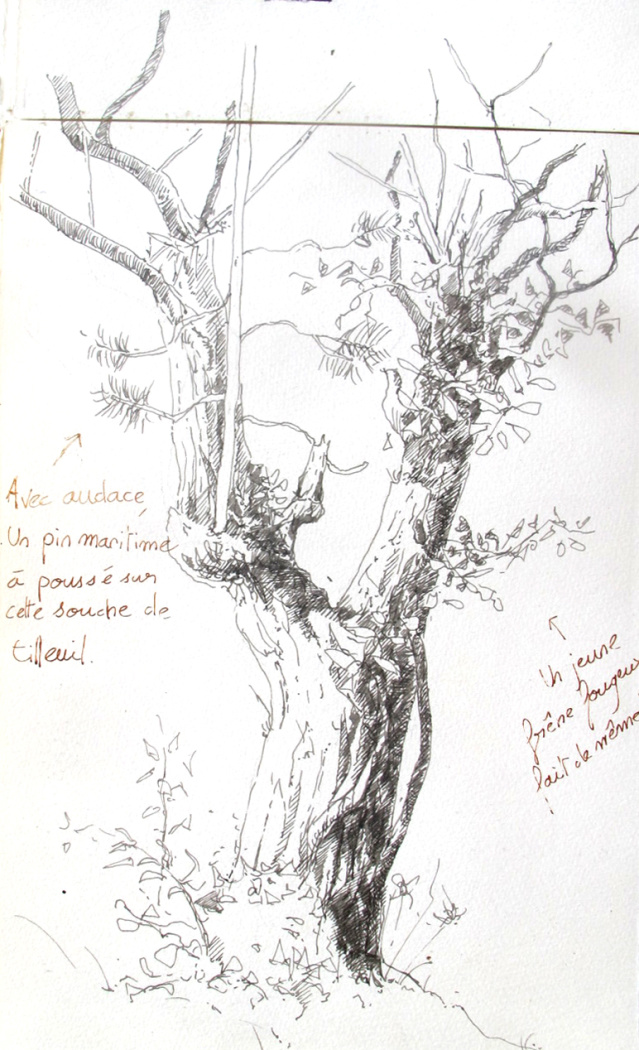 Avec audace
Un pin maritime
à poussé sur
cette souche de
tilleuil.
Un jeune
frêne fougeux
fait de même
!